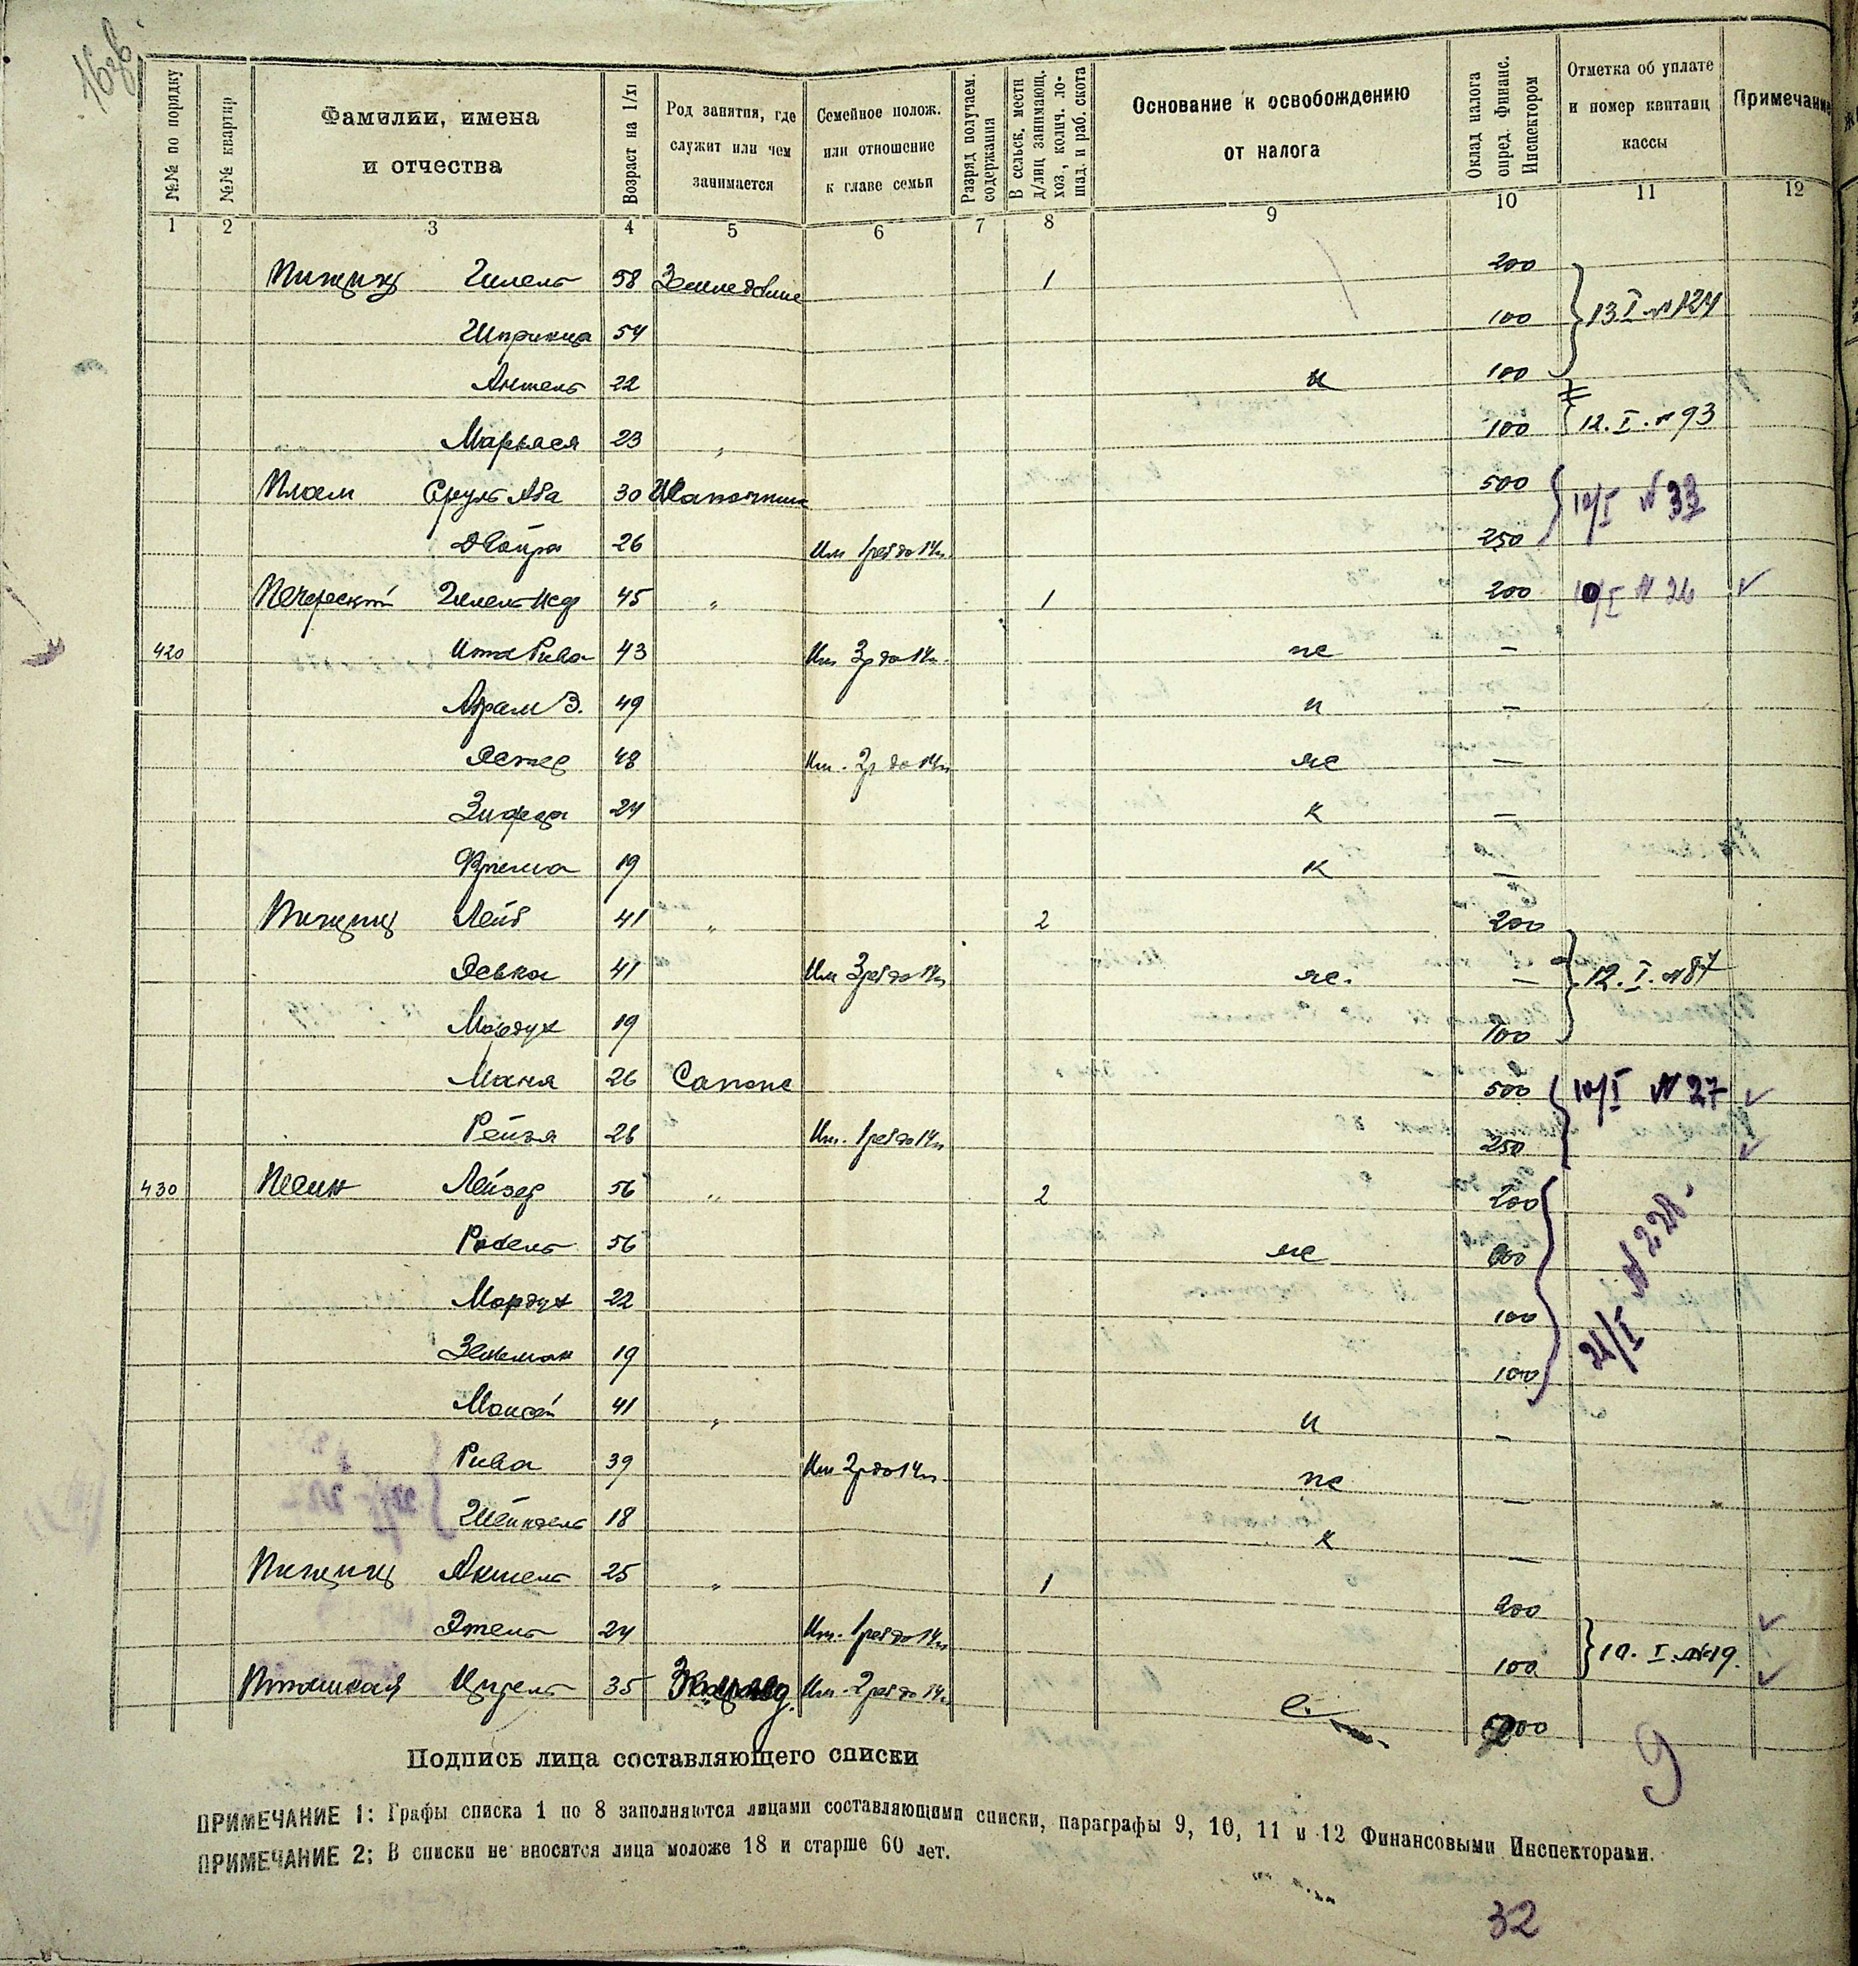 №№ по порядку | №№ квартир | Фамилии, имена и отчества | Возраст на 1/XI | Род занятия, где служит или чем занимается | Семейное полож. или отношение к главе семьи | Разряд получаем. содержания | В сельск. местн д/лиц занимающ. хоз., колич. лошад. и раб. скота | Основание к освобождению от налога | Оклад налога опред. Финанс. Инспектором | Отметка об уплате и номер квитанц кассы | Примечание
1 2 3 4 5 6 7 8 9 10 11 12
Гилель 58 Земледелие 1 200
54 100 13 I № 124
Аншель 22 100
Марьяся 23 " 100 12. I. № 93
Плам Сруль Аба 30 Шапочник 500 10/I № 33
Двойра 26 Им 1 реб до 14 л. 250
Печерский Гилель 45 " 1 200 10/I № 26
420 Ита Рива 43 Им 3 р до 14 л. не –
Абрам З. 49 и –
Эстер 48 Им. 2 р до 14 л –
24 к –
Фрейма 19 к –
Лейб 41 " 2 200
41 Им 3 реб до 14 л – 12. I. № 87
Мордух 19 100
Маня 26 Сапожн 500 10/I № 27
Рейзя 26 Им. 1 реб до 14 л 250
430 Песин Лейзер 56 " 2 200
Рохель 56
Мордух 22 100
Зельман 19 100
Моисей 41 " и –
Рива 39 Им 2 р до 14 л. не –
Шейндель 18 к –
Аншель 25 " 1 200
Этель 24 Им. 1 реб до 14 л 100 10. I. № 19.
35 Им. 2 реб до 14 л.
9
Подпись лица составляющего списки
ПРИМЕЧАНИЕ 1: Графы списка 1 по 8 заполняются лицами составляющими списки, параграфы 9, 10, 11 и 12 Финансовыми Инспекторами.
ПРИМЕЧАНИЕ 2: В списки не вносятся лица моложе 18 и старше 60 лет.
32